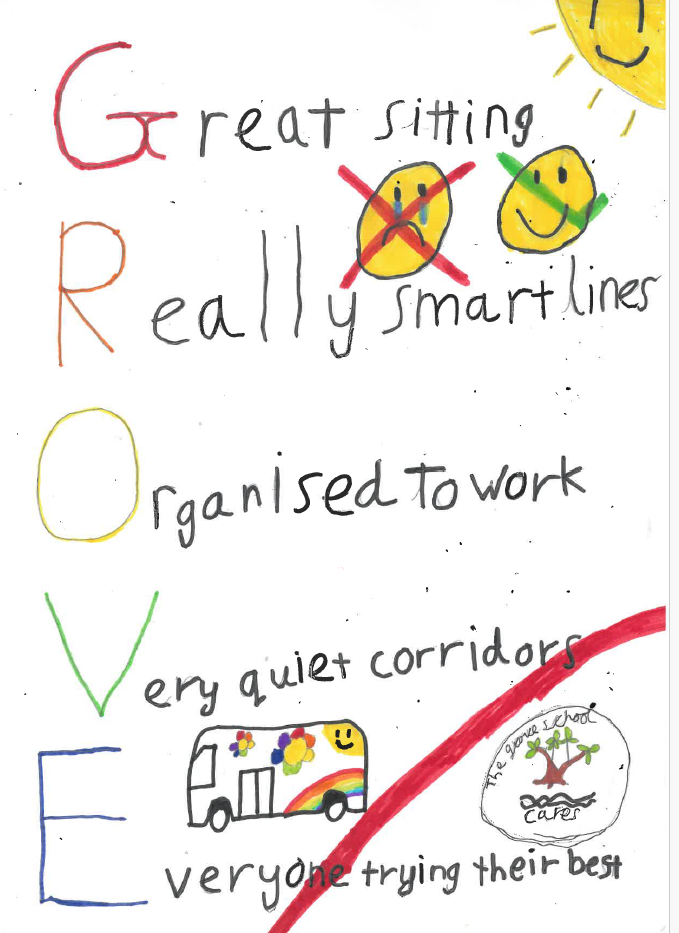 Great sitting
Really smart lines
Organised to work
Very quiet corridors
The grove school
cares
Everyone trying their best